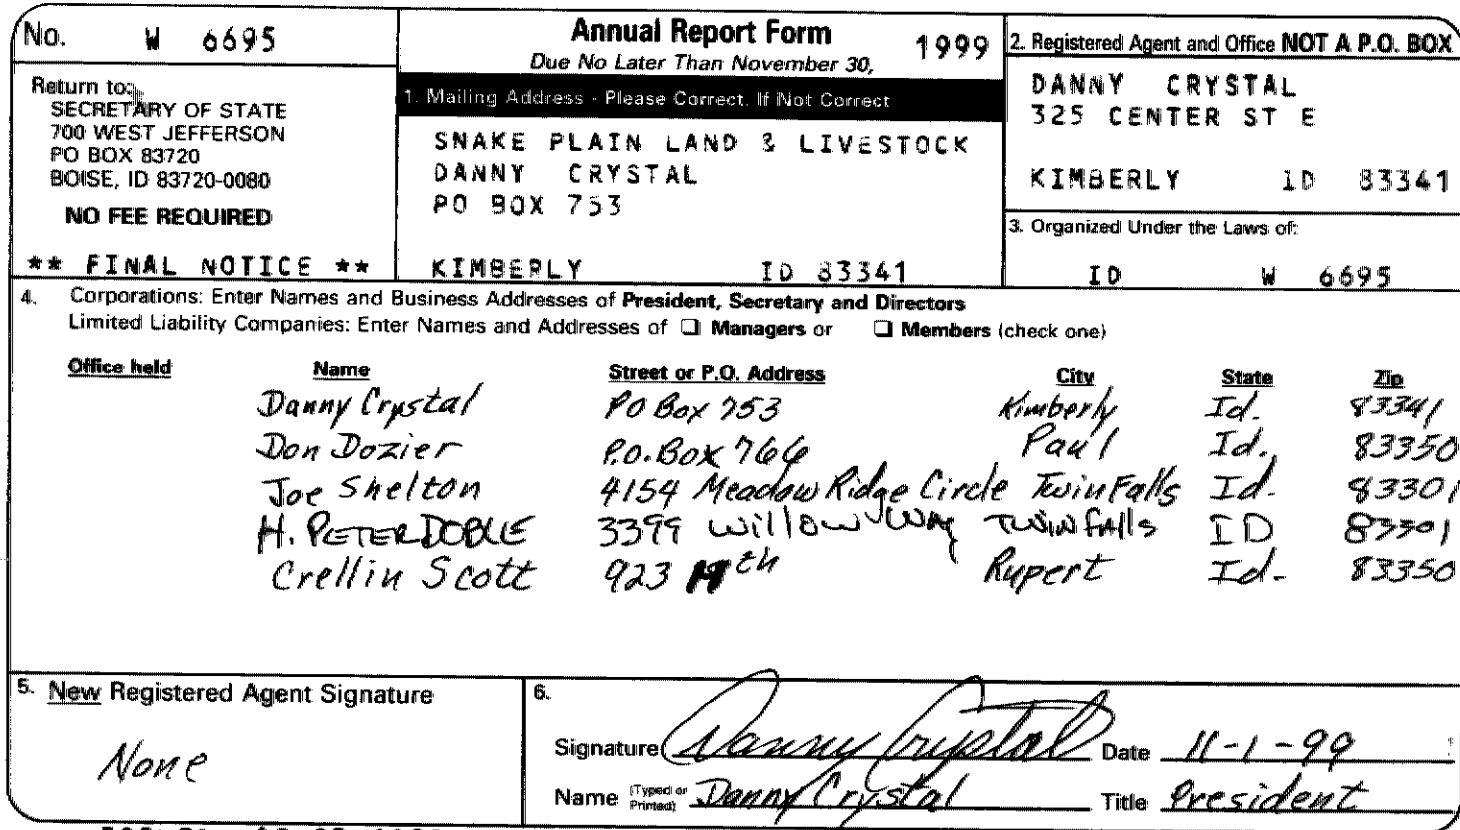 No. W 6695
Return to:
SECRETARY OF STATE
700 WEST JEFFERSON
PO BOX 83720
BOISE, ID 83720-0080
NO FEE REQUIRED
** FINAL NOTICE **
Annual Report Form 1999
Due No Later Than November 30,
1. Mailing Address - Please Correct. If Not Correct
SNAKE PLAIN LAND & LIVESTOCK
DANNY CRYSTAL
PO BOX 753
KIMBERLY ID 83341
2. Registered Agent and Office NOT A P.O. BOX
DANNY CRYSTAL
325 CENTER ST E
KIMBERLY ID 83341
3. Organized Under the Laws of:
ID W 6695
4. Corporations: Enter Names and Business Addresses of President, Secretary and Directors
Limited Liability Companies: Enter Names and Addresses of ❑ Managers or ❑ Members (check one)
Office held Name Street or P.O. Address City State Zip
Danny Crystal PO Box 753 Kimberly Id. 83341
Don Dozier P.O. Box 766 Paul Id. 83350
Joe Shelton 4154 Meadow Ridge Circle Twin Falls Id. 83301
H. PETER DOBLE 3399 Willow Way TWIN FAlls ID 83301
Crellin Scott 923 Rupert Id. 83350
5. New Registered Agent Signature
None
6.
Signature Danny Crystal Date 11-1-99
Name (Typed or Printed) Danny Crystal Title President